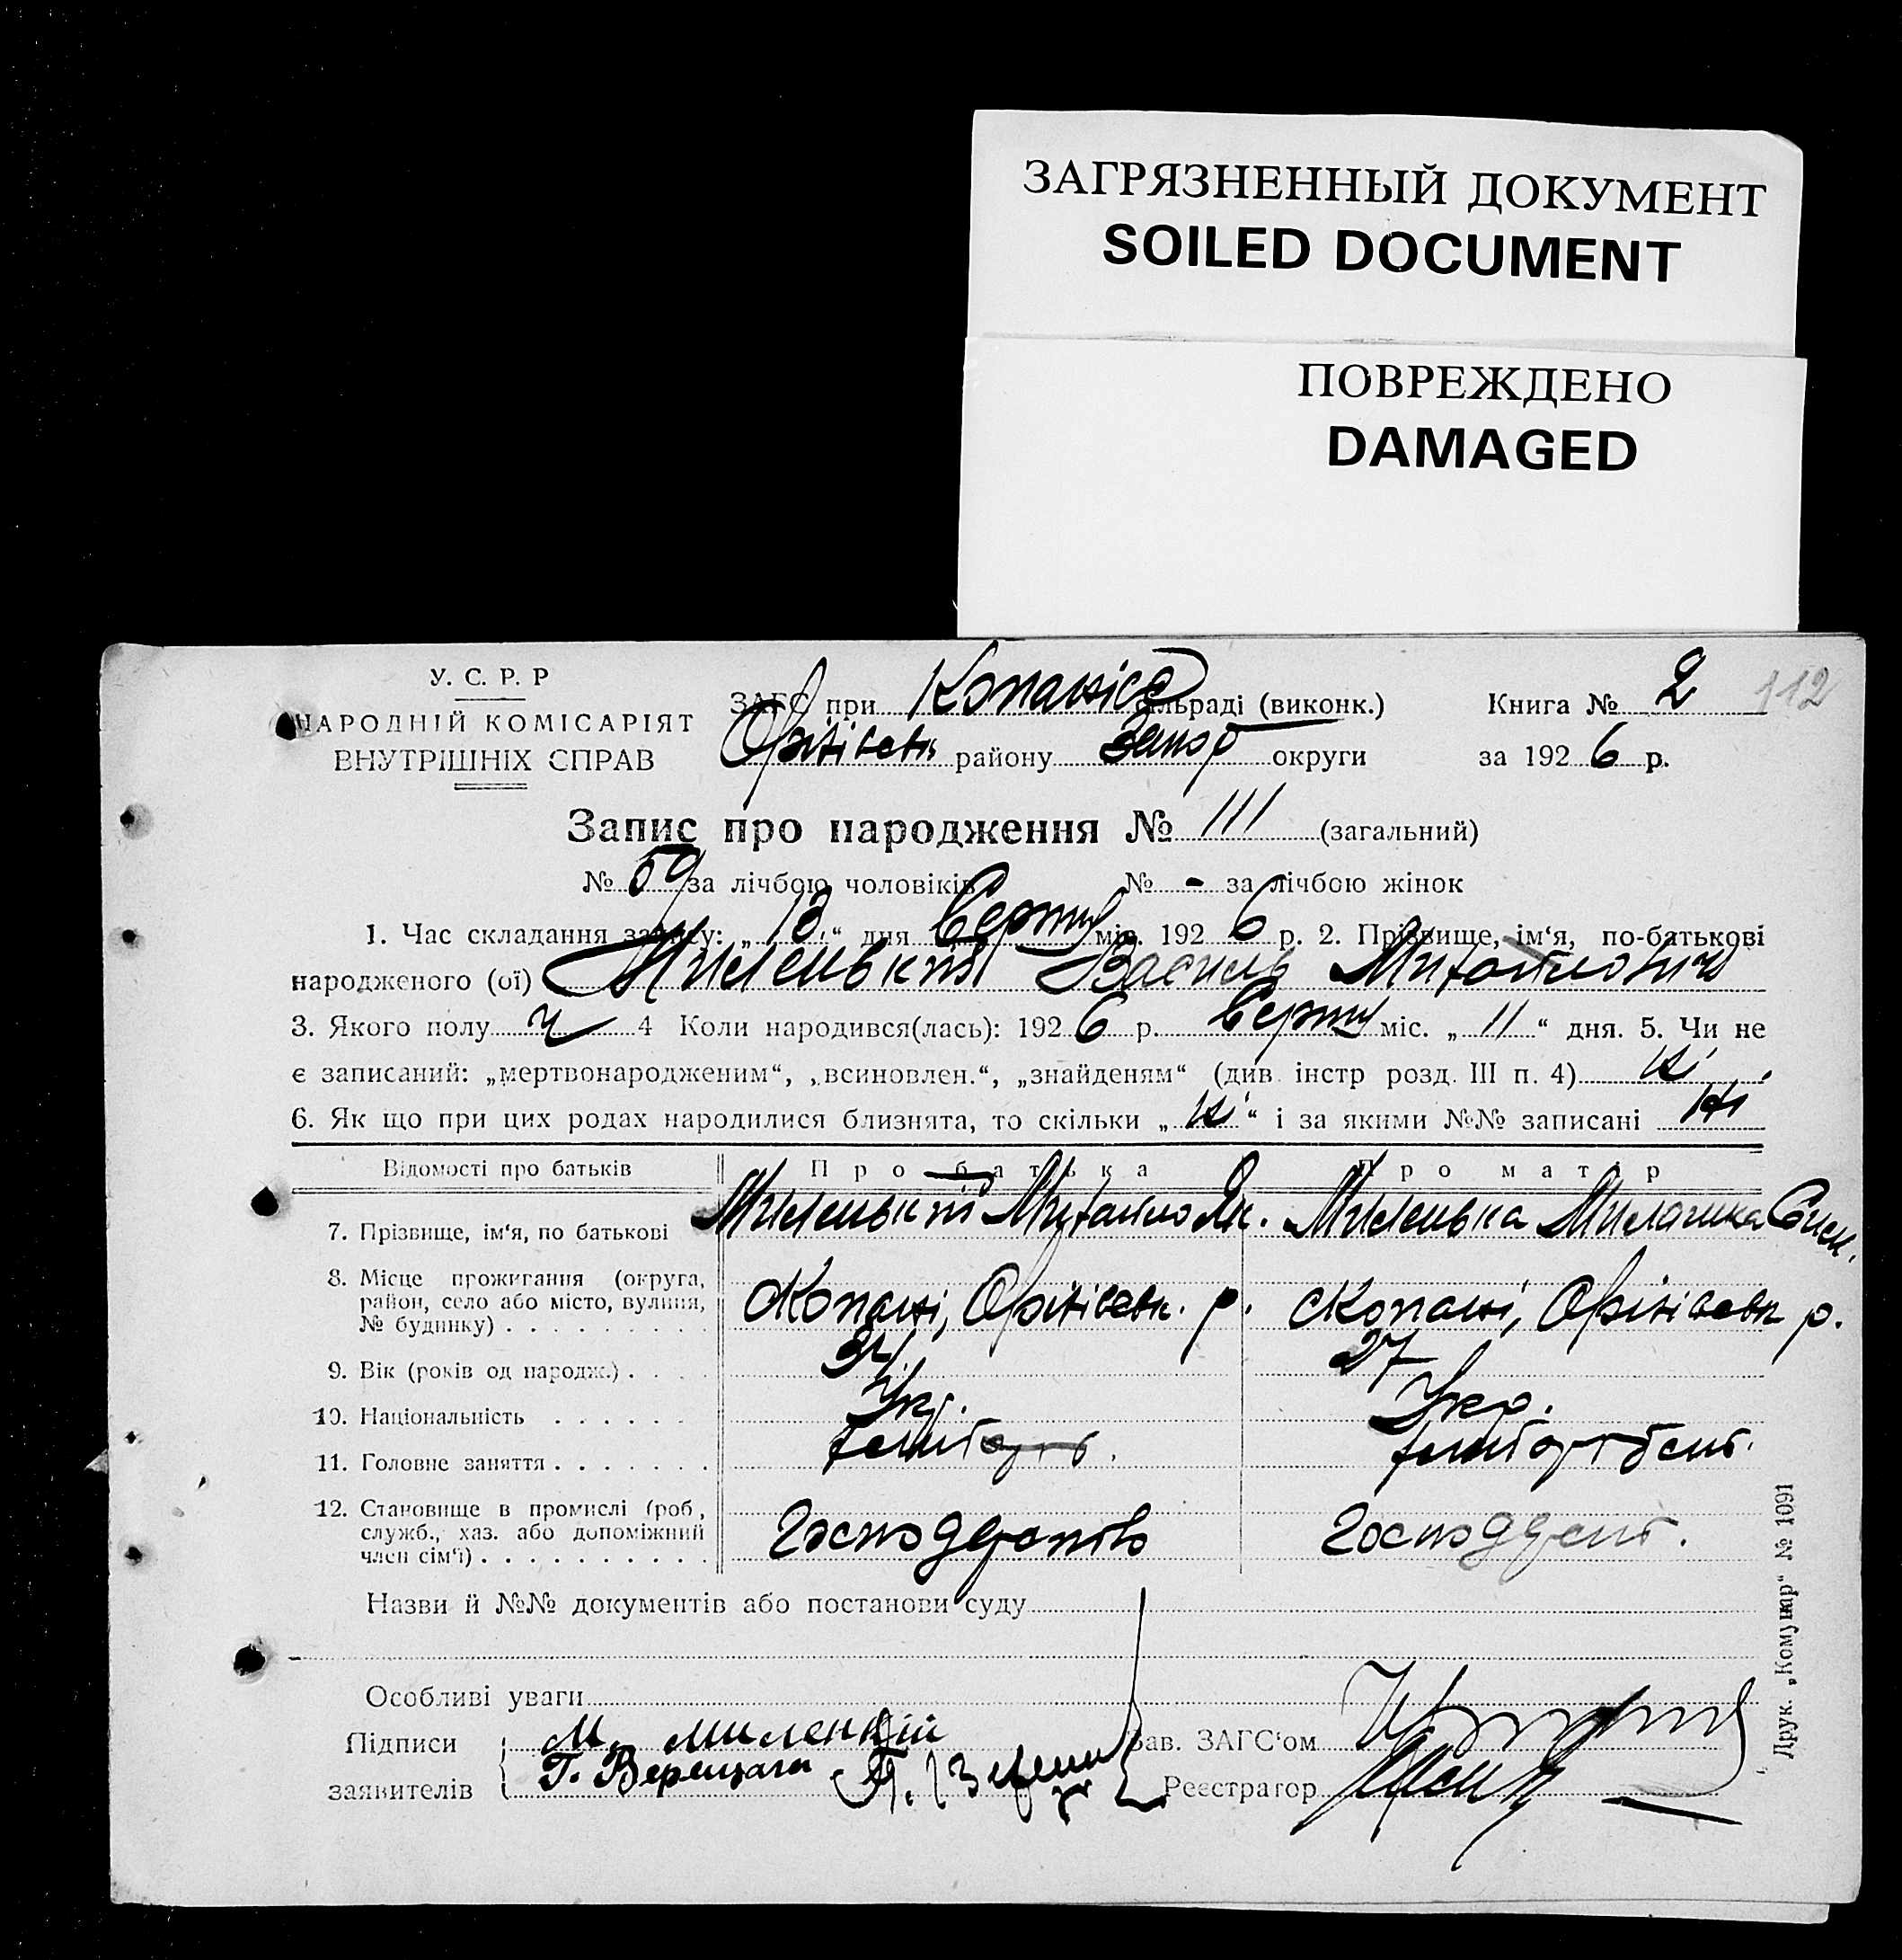 ЗАГРЯЗНЕННЫЙ ДОКУМЕНТ
SOILED DOCUMENT
ПОВРЕЖДЕНО
DAMAGED
У. С. Р. Р
НАРОДНІЙ КОМІСАРІЯТ
ВНУТРІШНІХ СПРАВ
ЗАГС при Копанісв сільраді (виконк.)
Оріхівськ району Запор округи
Книга № 2 112
за 192 6 р.
Запис про народження № 111 (загальний)
№ 59 за лічбою чоловіків № - за лічбою жінок
1. Час складання запису: „ 13 “ дня Серпн міс. 192 6 р. 2. Прізвище, ім‘я, по-батькові
народженого (ої) Миленький Василь Михайлович
3. Якого полу ч 4 Коли народився(лась): 192 6 р. Серпн міс. „ 11 “ дня. 5. Чи не
є записаний: „мертвонародженим“, „всиновлен.“, „знайденям“ (див. інстр розд. III п. 4) ні
6. Як що при цих родах народилися близнята, то скільки „ ні “ і за якими №№ записані ні
Відомості про батьків Про батька Про матір
7. Прізвище, ім‘я, по батькові Миленький Михайло Як. Миленька Милашка
8. Місце прожигання (округа,
район, село або місто, вулиця,
№ будинку) Копані, Оріхівськ. р. Копані, Оріхівськ р.
9. Вік (років од народж.) 31 27
10. Національність Укр. Укр.
11. Головне заняття
12. Становище в промислі (роб,
служб., хаз. або допоміжний
член сім‘ї)
Назви й №№ документів або постанови суду
Особливі уваги
Підписи М. миленкій Зав. ЗАГС‘ом
заявителів Г. Верещага Реєстратор
Друк. „Комунар“ № 1091